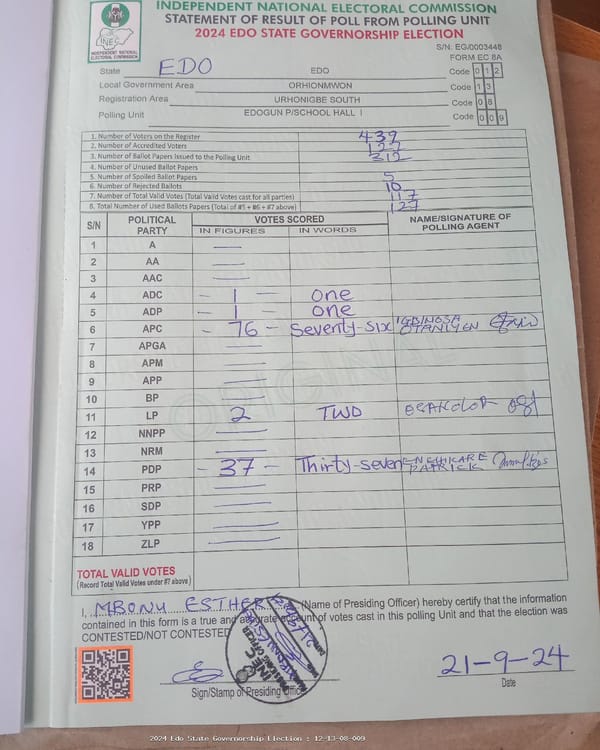 INDEPENDENT NATIONAL ELECTORAL COMMISSION
STATEMENT OF RESULT OF POLL FROM POLLING UNIT
2024 EDO STATE GOVERNORSHIP ELECTION
INEC
INDEPENDENT NATIONAL ELECTORAL COMMISSION
S/N. EG/0003448
FORM EC 8A
State EDO EDO Code 0 1 2
Local Government Area ORHIONMWON Code 1 3
Registration Area URHONIGBE SOUTH Code 0 8
Polling Unit EDOGUN P/SCHOOL HALL I Code 0 0 9
1. Number of Voters on the Register 439
2. Number of Accredited Voters 127
3. Number of Ballot Papers Issued to the Polling Unit
4. Number of Unused Ballot Papers 312
5. Number of Spoiled Ballot Papers 5
6. Number of Rejected Ballots 10
7. Number of Total Valid Votes (Total Valid Votes cast for all parties) 117
8. Total Number of Used Ballots Papers (Total of #5 + #6 + #7 above) 127
S/N POLITICAL PARTY VOTES SCORED NAME/SIGNATURE OF POLLING AGENT
IN FIGURES IN WORDS
1 A —
2 AA —
3 AAC —
4 ADC – 1 – one
5 ADP – 1 – one
6 APC – 76 – Seventy-six IGBINOSA
7 APGA —
8 APM —
9 APP —
10 BP —
11 LP 2 TWO
12 NNPP —
13 NRM —
14 PDP – 37 – Thirty-seven PATRICK
15 PRP —
16 SDP —
17 YPP —
18 ZLP —
TOTAL VALID VOTES
(Record Total Valid Votes under #7 above)
I, MBONU ESTHER (Name of Presiding Officer) hereby certify that the information
contained in this form is a true and accurate account of votes cast in this polling Unit and that the election was
CONTESTED/NOT CONTESTED
INEC
21-9-24
Sign/Stamp of Presiding Officer Date
2024 Edo State Governorship Election : 12-13-08-009